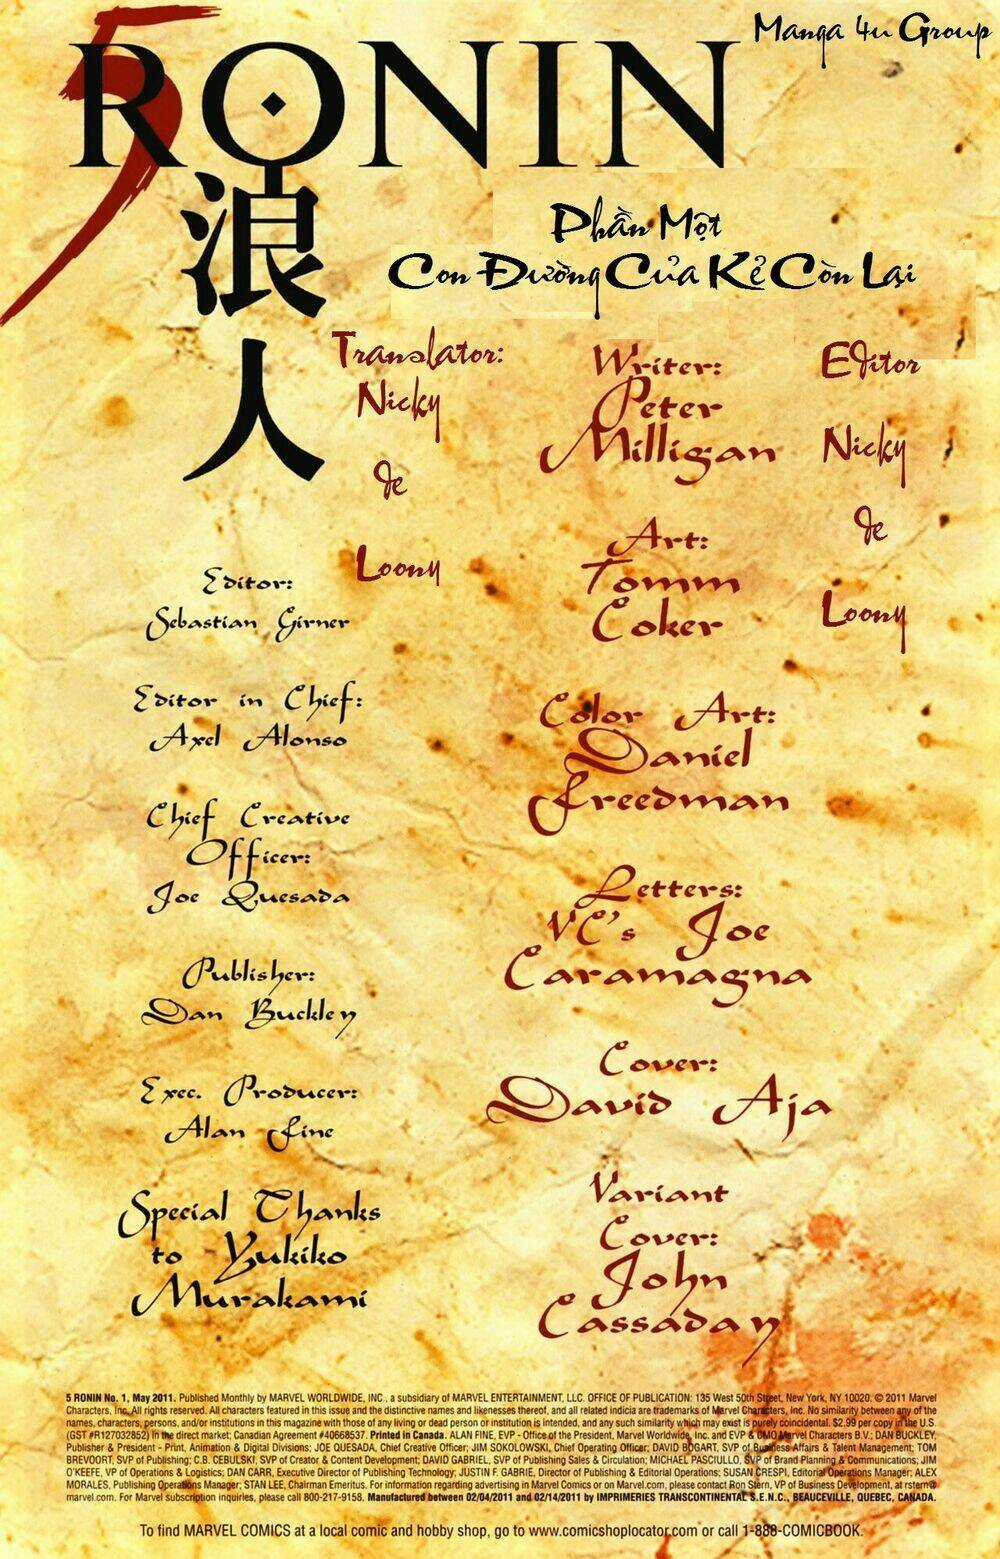 Manga 4u Group
5 RONIN
浪人
Phần Một
Con Đường Của Kẻ Còn Lại
Translator:
Nicky
de
Loony
Writer:
Peter
Milligan
Editor
Nicky
de
Loony
Art:
Tomm
Coker
Editor:
Sebastian Girner
Editor in Chief:
Axel Alonso
Chief Creative
Officer:
Joe Quesada
Publisher:
Dan Buckley
Exec. Producer:
Alan Fine
Special Thanks
to Yukiko
Murakami
Color Art:
Daniel
Freedman
Letters:
VC's Joe
Caramagna
Cover:
David Aja
Variant
Cover:
John
Cassaday
5 RONIN No. 1, May 2011. Published Monthly by MARVEL WORLDWIDE, INC., a subsidiary of MARVEL ENTERTAINMENT, LLC. OFFICE OF PUBLICATION: 135 West 50th Street, New York, NY 10020. © 2011 Marvel
Characters, Inc. All rights reserved. All characters featured in this issue and the distinctive names and likenesses thereof, and all related indicia are trademarks of Marvel Characters, Inc. No similarity between any of the
names, characters, persons, and/or institutions in this magazine with those of any living or dead person or institution is intended, and any such similarity which may exist is purely coincidental. $2.99 per copy in the U.S.
(GST #R127032852) in the direct market; Canadian Agreement #40668537. Printed in Canada. ALAN FINE, EVP - Office of the President, Marvel Worldwide, Inc. and EVP & CMO Marvel Characters B.V.; DAN BUCKLEY,
Publisher & President - Print, Animation & Digital Divisions; JOE QUESADA, Chief Creative Officer; JIM SOKOLOWSKI, Chief Operating Officer; DAVID BOGART, SVP of Business Affairs & Talent Management; TOM
BREVOORT, SVP of Publishing; C.B. CEBULSKI, SVP of Creator & Content Development; DAVID GABRIEL, SVP of Publishing Sales & Circulation; MICHAEL PASCIULLO, SVP of Brand Planning & Communications; JIM
O'KEEFE, VP of Operations & Logistics; DAN CARR, Executive Director of Publishing Technology; JUSTIN F. GABRIE, Director of Publishing & Editorial Operations; SUSAN CRESPI, Editorial Operations Manager; ALEX
MORALES, Publishing Operations Manager; STAN LEE, Chairman Emeritus. For information regarding advertising in Marvel Comics or on Marvel.com, please contact Ron Stern, VP of Business Development, at rstern@
marvel.com. For Marvel subscription inquiries, please call 800-217-9158. Manufactured between 02/04/2011 and 02/14/2011 by IMPRIMERIES TRANSCONTINENTAL S.E.N.C., BEAUCEVILLE, QUEBEC, CANADA.
To find MARVEL COMICS at a local comic and hobby shop, go to www.comicshoplocator.com or call 1-888-COMICBOOK.